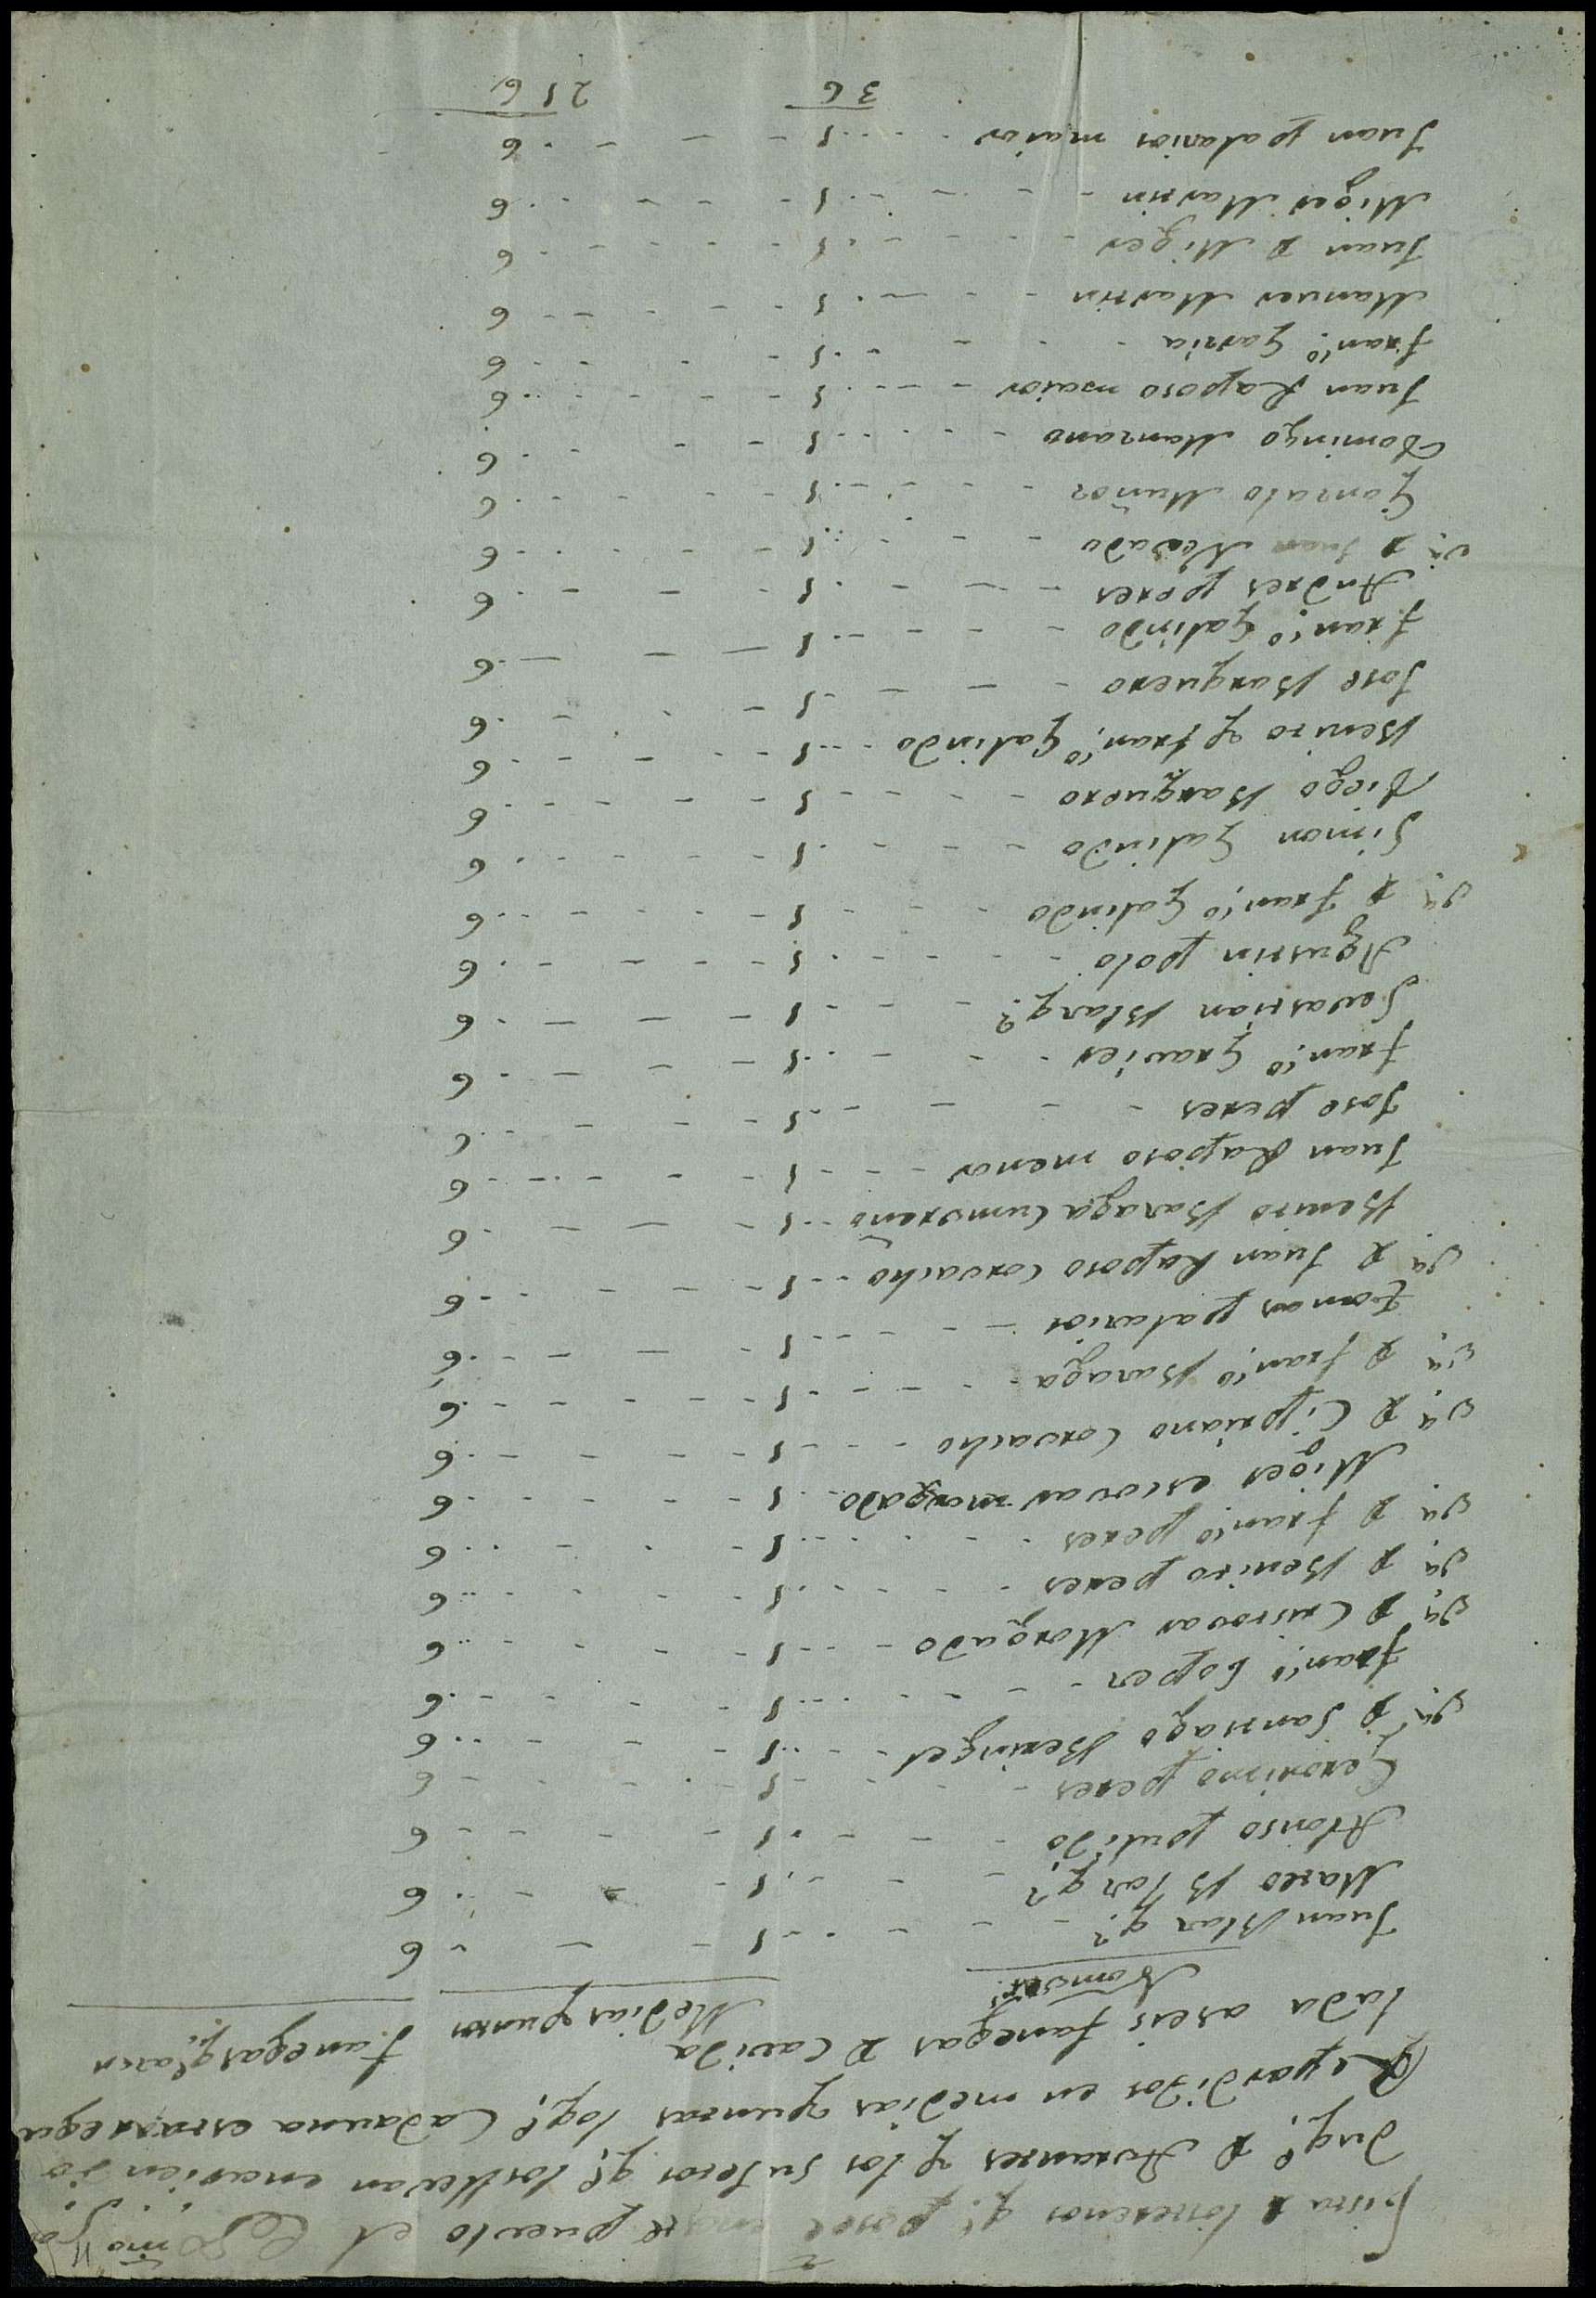 Lista de los terrenos q.e posee en este pueblo el Exmo Sor
Duq.e de Abrantes y los sujetos q.e los llevan en arien do
Repartidos en medias yuntas log.e Cada una esta regu
lada a seis fanegas de Cavida
Nombres Medias yuntas Fanegas q.e acen
Juan Blazq.z 1 6
Mateo Blazq.z 1 6
Alonso pulido 1 6
Geronimo perez 1 6
V.a de Santiago Beringel 1 6
Fran.co Lopez 1 6
V.a de Cristoval Morgado 1 6
V.a de Benito perez 1 6
V.a de Fran.co perez 1 6
Migel escovar morgado 1 6
V.a de Cipriano Corvacho 1 6
V.a de Fran.co Baraga 1 6
Tomas palacios 1 6
V.a de Juan Raposo Corvacho 1 6
Benito Baraga Cumbreño 1 6
Juan Raposo menor 1 6
Jose perez 1 6
Fran.co Gravier 1 6
Sevastian Blazq.z 1 6
Agustin polo 1 6
V.a de Fran.co Galindo 1 6
Simon Galindo 1 6
Diego Barquero 1 6
Benito y Fran.co Galindo 1 6
Jose Barquero 1 6
Fran.co Galindo 1 6
Andres perez 1 6
V.a de Juan Nevado 1 6
Gonzalo Muñoz 1 6
Domingo Manzano 1 6
Juan Raposo maior 1 6
Fran.co Garcia 1 6
Manuel Martin 1 6
Juan de Migel 1 6
Migel Martin 1 6
Juan palacios maior 1 6
36 216